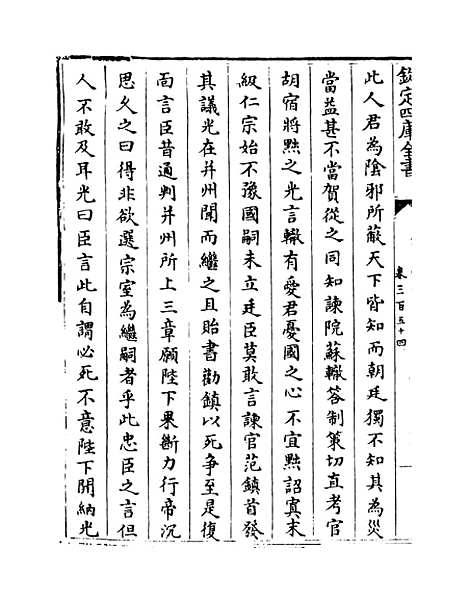 欽定四庫全書
卷三百五十四
此人君為陰邪所蔽天下皆知而朝廷獨不知其為災
當益甚不當賀從之同知諫院蘇轍答制策切直考官
胡宿將黜之光言轍有愛君憂國之心不宜黜詔寘末
級仁宗始不豫國嗣未立廷臣莫敢言諫官范鎮首發
其議光在并州聞而繼之且貽書勸鎮以死爭至是復
面言臣昔通判并州所上三章願陛下果斷力行帝沉
思久之曰得非欲選宗室為繼嗣者乎此忠臣之言但
人不敢及耳光曰臣言此自謂必死不意陛下開納光